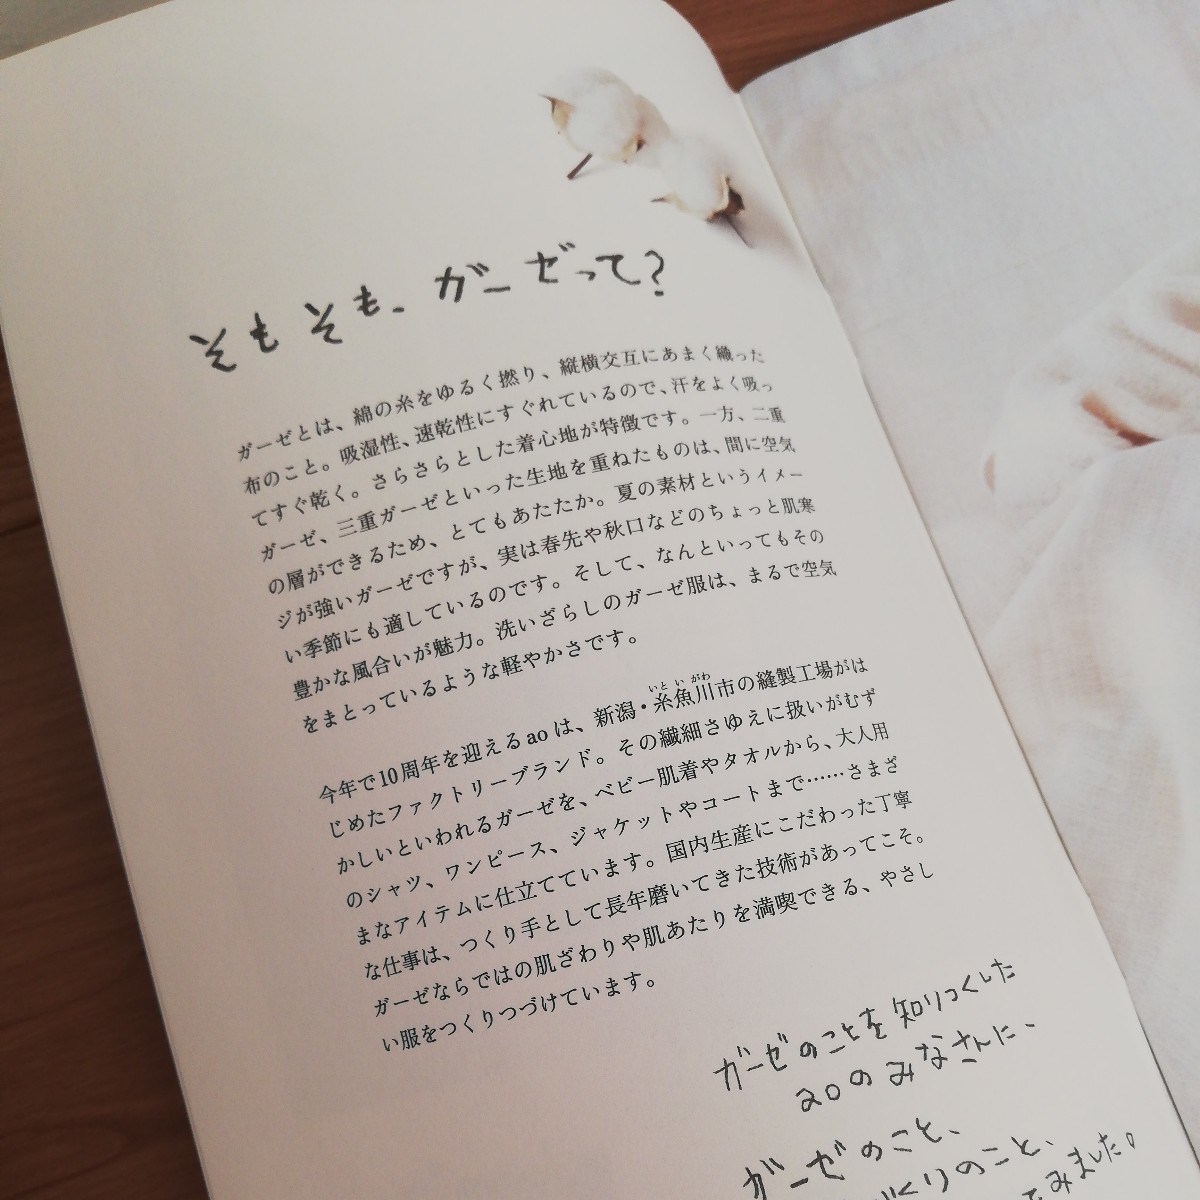 そもそも、ガーゼって?
ガーゼとは、綿の糸をゆるく撚り、縦横交互にあまく織った
布のこと。吸湿性、速乾性にすぐれているので、汗をよく吸っ
てすぐ乾く。さらさらとした着心地が特徴です。一方、二重
ガーゼ、三重ガーゼといった生地を重ねたものは、間に空気
の層ができるため、とてもあたたか。夏の素材というイメー
ジが強いガーゼですが、実は春先や秋口などのちょっと肌寒
い季節にも適しているのです。そして、なんといってもその
豊かな風合いが魅力。洗いざらしのガーゼ服は、まるで空気
をまとっているような軽やかさです。
今年で10周年を迎えるaoは、新潟・糸魚川市の縫製工場がは
いといがわ
じめたファクトリーブランド。その繊細さゆえに扱いがむず
かしいといわれるガーゼを、ベビー肌着やタオルから、大人用
のシャツ、ワンピース、ジャケットやコートまで……さまざ
まなアイテムに仕立てています。国内生産にこだわった丁寧
な仕事は、つくり手として長年磨いてきた技術があってこそ。
ガーゼならではの肌ざわりや肌あたりを満喫できる、やさし
い服をつくりつづけています。
ガーゼのことを知りつくした
aoのみなさんに、
ガーゼのこと、
づくりのこと、
てみました。